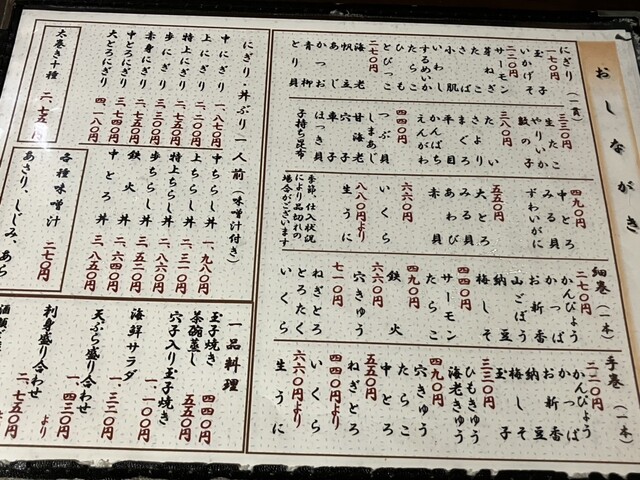 おしながき
にぎり（一貫）
一七〇円
玉子
いかげそ
二二〇円
サーモン
芽ねぎ
たこ
さば
小肌
いわし
するめいか
たらこ
ひも
とびっこ
二七〇円
海老
帆立
あじ
かつお
青柳
とり貝
三三〇円
生たこ
やりいか
数の子
三八〇円
たい
さより
平目
かんぱち
えんがわ
四四〇円
つぶ貝
しまあじ
甘海老
穴子
車子
ほっき貝
子持ち昆布
四九〇円
中とろ
みる貝
ずわいがに
五五〇円
大とろ
みる貝
あわび
赤貝
六六〇円
いくら
八八〇円より
生うに
季節、仕入状況
により品切れの
場合がございます
細巻（一本）
二七〇円
かんぴょう
かっぱ
お新香
山ごぼう
納豆
梅しそ
四四〇円
サーモン
たらこ
四九〇円
鉄火
六六〇円
穴きゅう
七一〇円
ねぎとろ
とろたく
いくら
手巻（一本）
二二〇円
かんぴょう
かっぱ
お新香
納豆
梅しそ
玉子
三三〇円
ひもきゅう
海老きゅう
四九〇円
穴きゅう
たらこ
中とろ
五五〇円
ねぎとろ
四四〇円より
いくら
六六〇円より
生うに
にぎり・丼ぶり 一人前（味噌汁付き）
中にぎり 一、八七〇円
上にぎり 二、二〇〇円
特上にぎり
歩にぎり 三、一〇〇円
赤身にぎり 三、三〇〇円
中とろにぎり 三、七四〇円
大とろにぎり 四、一八〇円
中ちらし丼 一、九八〇円
上ちらし丼
特上ちらし丼 三、一〇〇円
歩ちらし丼
鉄火丼 二、六四〇円
中とろ丼 三、八五〇円
太巻き十種 二、七五〇円
各種味噌汁 二七〇円
あさり、しじみ、あら
一品料理
玉子焼き 四四〇円
茶碗蒸し 五五〇円
穴子入り玉子焼き
海鮮サラダ 一、一〇〇円
天ぷら盛り合わせ 一、三二〇円
刺身盛り合わせ 一、四三〇円より
二、七五〇円より